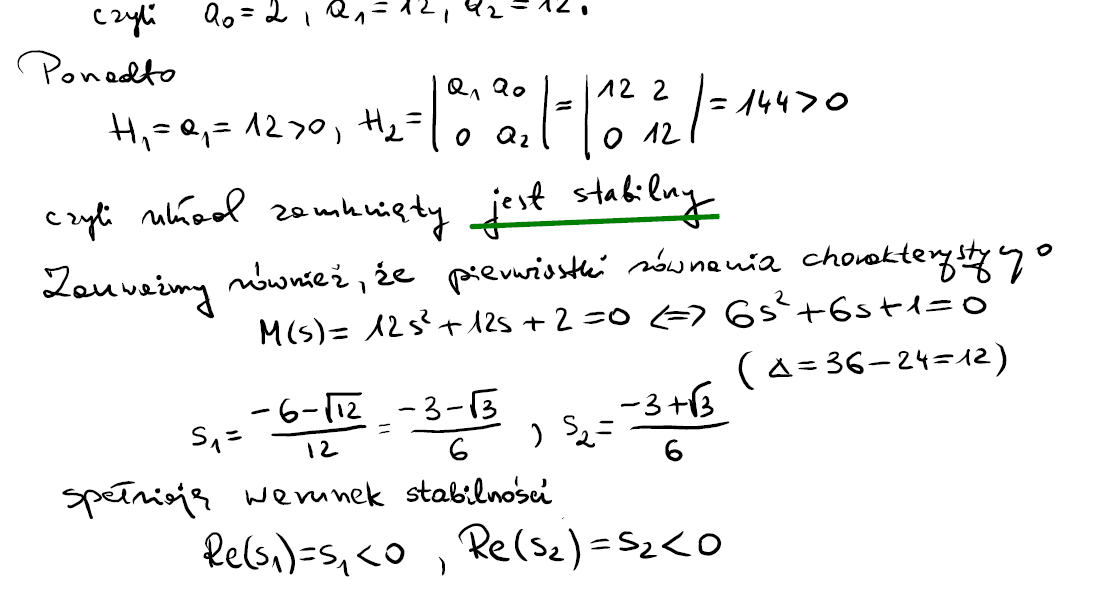 czyli a₀ = 2, a₁ = 12, a₂ = 12.
Ponadto
H₁ = a₁ = 12 > 0, H₂ = |a₁ a₀; 0 a₂| = |12 2; 0 12| = 144 > 0
czyli układ zamknięty jest stabilny
Zauważmy również, że pierwiastki równania charakterystycz go
M(s) = 12s² + 12s + 2 = 0 <=> 6s² + 6s + 1 = 0
(Δ = 36 - 24 = 12)
s₁ = (-6-√12)/12 = (-3-√3)/6, s₂ = (-3+√3)/6
spełniają warunek stabilności
Re(s₁) = s₁ < 0, Re(s₂) = s₂ < 0